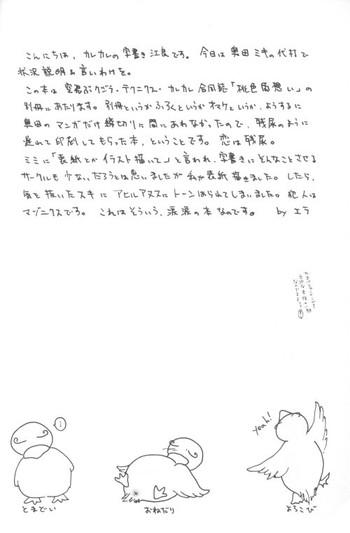 こんにちは、カレカレの字書き江良です。今日は奥田ミキの代打で
状況説明&言いわけを。
この本は 空想ぶりブラ・テクニクス・カレカレ 合同誌「桃色面想い」の
別冊にあたります。別冊というかふろくというかオマケというか、ようするに
奥田の マンガだけ締切りに間にあわなかったので、残尿のように
遅れて印刷してもらった本、ということです。恋は残尿。
ミミに「表紙とか イラスト描いて」と言われ、字書きにどんなことさせる
サークルも 少ないだろうとは思いましたが 私が表紙描きました。したら、
気を抜いたスキに アヒルアヌスにトーンはられてしまいました。犯人は
マゾニクスです。 これはそういう、涙涙の本なのです。 by エラ
!
yeah!
とまどい
おねだり
よろこび